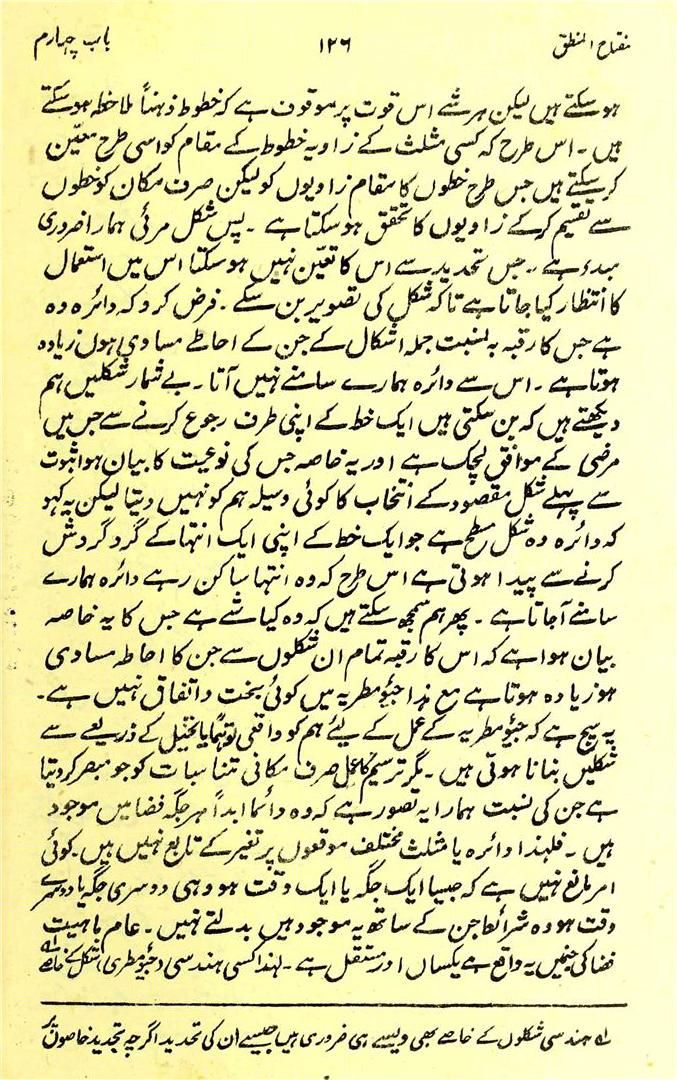 مفتاح المنطق ۱۲۶ باب چہارم
ہوسکتے ہیں لیکن ہر شے اس قوت پر موقوف ہے کہ خطوط ذہناً ملاحظہ ہوسکتے
ہیں۔ اس طرح کہ کسی مثلث کے زاویہ خطوط کے مقام کو اسی طرح معیّن
کرسکتے ہیں جس طرح خطوں کا مقام زاویوں کو لیکن صرف مکان کو خطوں
سے تقسیم کرکے زاویوں کا تحقق ہوسکتا ہے۔ پس شکل مرئی ہمارا ضروری
مبدء ہے،، جس تحدید سے اس کا تعیّن نہیں ہوسکتا اس میں استعمال
کا انتظار کیا جاتا ہے تاکہ شکل کی تصویر بن سکے۔ فرض کرو کہ دائرہ وہ
ہے جس کا رقبہ بہ نسبت جملہ اشکال کے جن کے احاطے مساوی ہوں زیادہ
ہوتا ہے۔ اس سے دائرہ ہمارے سامنے نہیں آتا۔ بے شمار شکلیں ہم
دیکھتے ہیں کہ بن سکتی ہیں ایک خط کے اپنی طرف رجوع کرنے سے جس میں
مرضی کے موافق لچک ہے اور یہ خاصہ جس کی نوعیت کا بیان ہوا ثبوت
سے پہلے شکل مقصود کے انتخاب کا کوئی وسیلہ ہم کو نہیں دیتا لیکن یہ کہو
کہ دائرہ وہ شکل مسطح ہے جو ایک خط کے اپنی ایک انتہا کے گرد گردش
کرنے سے پیدا ہوتی ہے اس طرح کہ وہ انتہا ساکن رہے دائرہ ہمارے
سامنے آجاتا ہے۔ پھر ہم سمجھ سکتے ہیں کہ وہ کیا شے ہے جس کا یہ خاصہ
بیان ہوا ہے کہ اس کا رقبہ تمام ان شکلوں سے جن کا احاطہ مساوی
ہو زیادہ ہوتا ہے مع ہذا جیومطریہ میں کوئی بخت واتفاق نہیں ہے۔
یہ سچ ہے کہ جیومطریہ کے عمل کے لیئے ہم کو واقعی توہّماً یا تخئیل کے ذریعے سے
شکلیں بنانا ہوتی ہیں۔ مگر ترسیم کا عمل صرف مکانی تناسبات کو جو مبصر کردیتا
ہے جن کی نسبت ہمارا یہ تصور ہے کہ وہ دائماً ابداً ہر جگہ فضا میں موجود
ہیں۔ فلہذا دائرہ یا مثلث مختلف موقعوں پر تغیر کے تابع نہیں ہیں۔ کوئی
امر مانع نہیں ہے کہ جیسا ایک جگہ یا ایک وقت ہو وہی دوسری جگہ یا دوسرے
وقت ہو وہ شرائط جن کے ساتھ یہ موجود ہیں بدلتے نہیں۔ عام ماہیت
فضا کی جنمیں یہ واقع ہے یکساں اور مستقل ہے۔ لہذا کسی ہندسی (جیومطری) شکل کے خاصے
؎ ہندسی شکلوں کے خاصے بھی ویسے ہی ضروری ہیں جیسے ان کی تحدید اگرچہ تجدید خاصوں پر